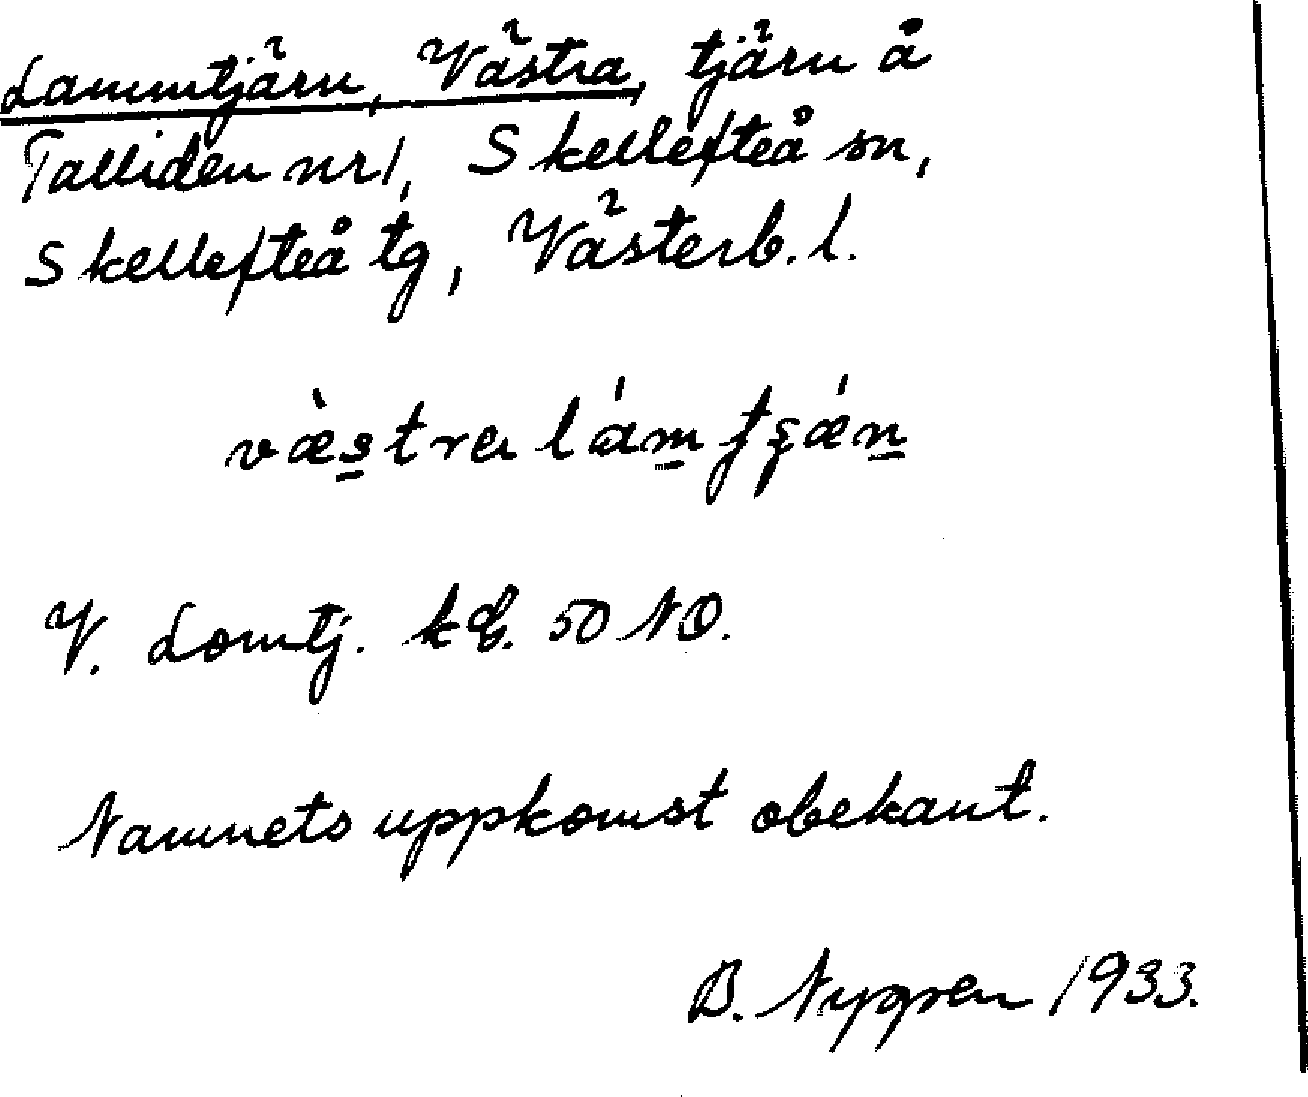 Lammtjärn, Västra, tjärn å
Talliden nr 1, Skellefteå sn,
Skellefteå tg, Västerb. l.
væ̀stra lám
V. Lomtj. kbl. 50 NO.
Namnets uppkomst obekant.
B. Nygren 1933.